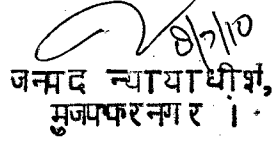 8/7/10
जनपद न्यायाधीश,
मुजफ्फरनगर ।